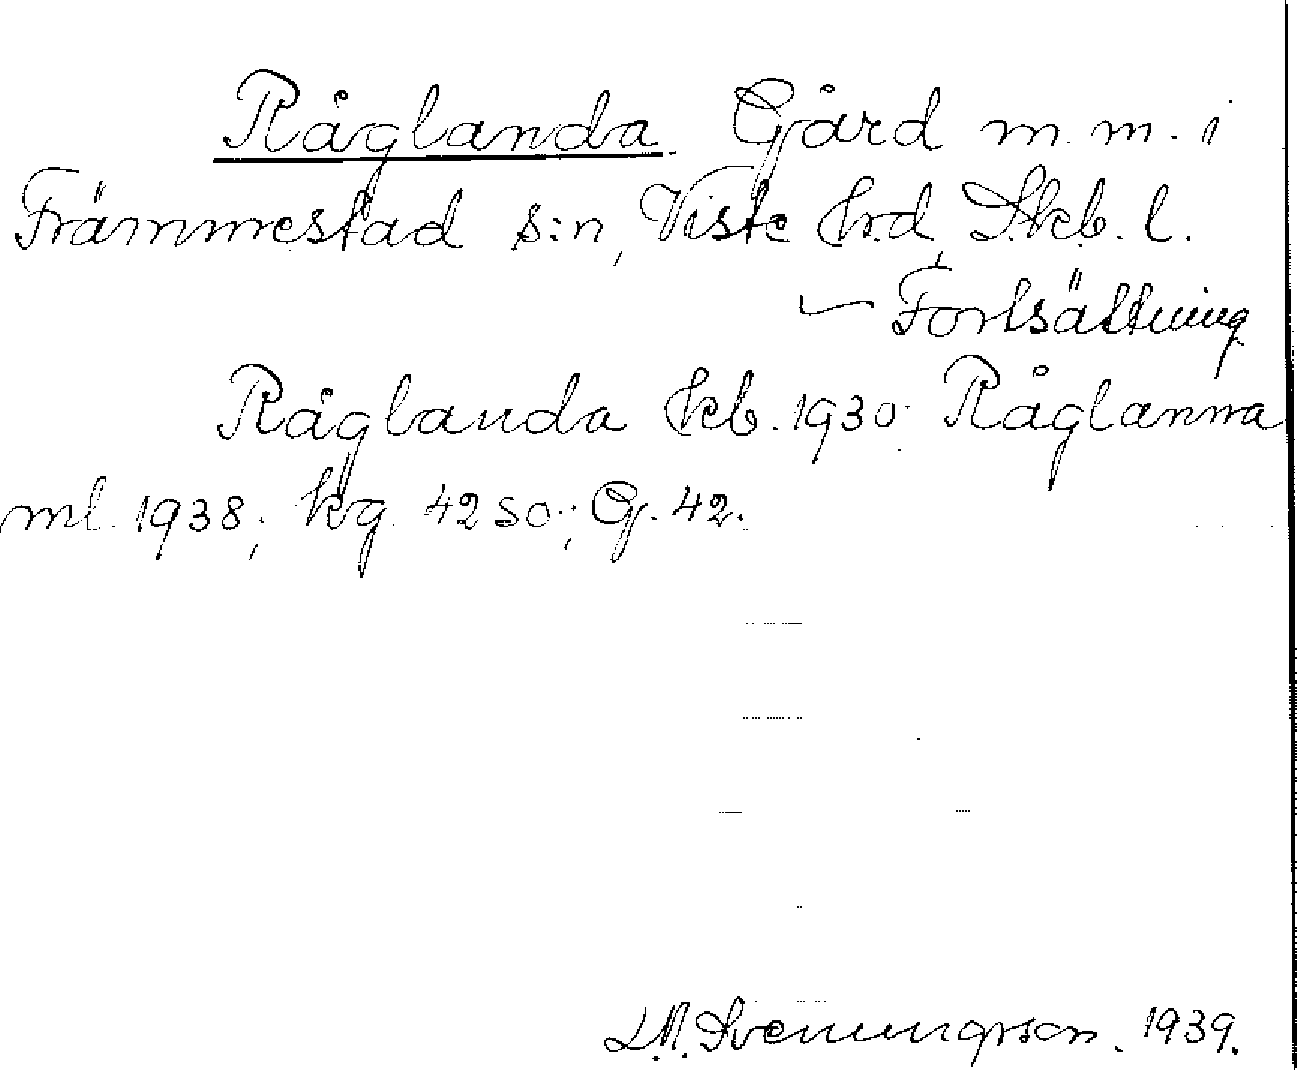 Råglanda. Gård m.m. i
Främmestad s:n, Viste hd, Skb. l.
— Fortsättning
Råglanda kb. 1930. Råglanna
ml. 1938; kg. 42 SO.; G. 42.
L.M. Svenungsson. 1939.